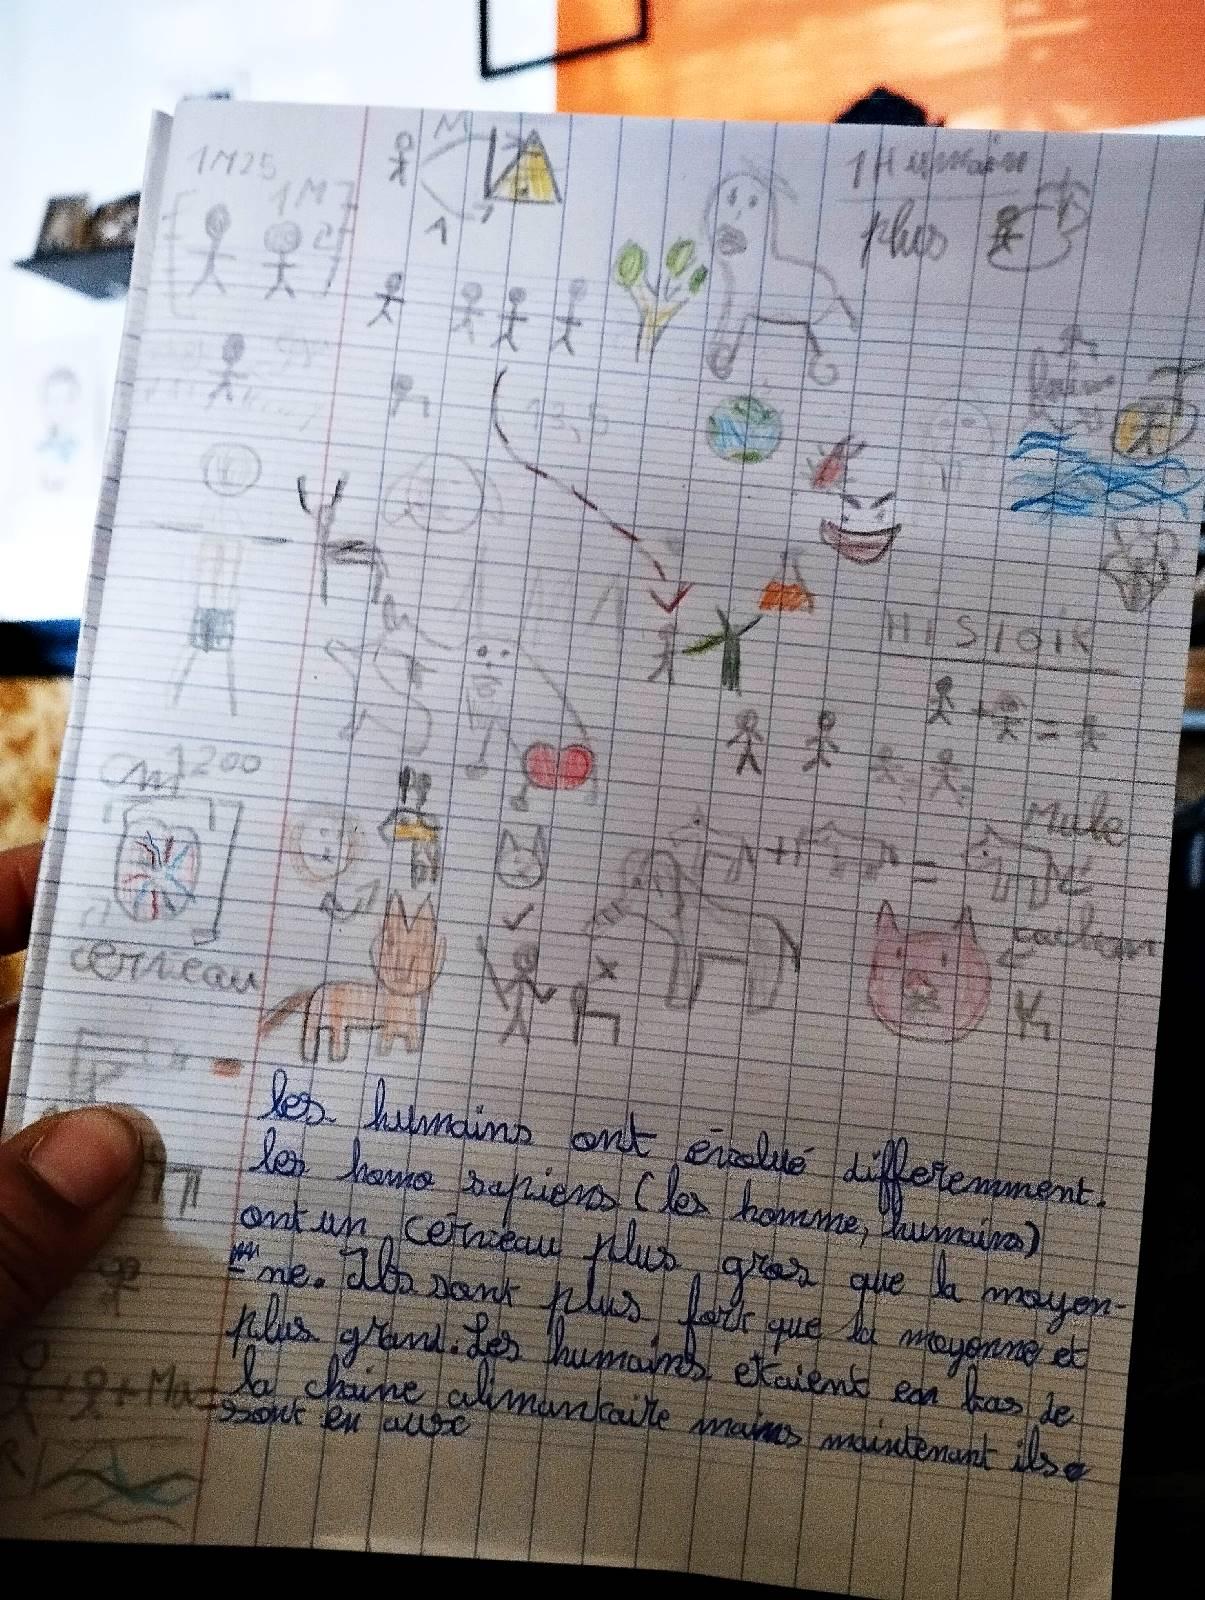 1M25
M
1 Humain
1M7
plus
1
13,5
HISTOIR
cm 1200
Mule
cerveau
les humains ont évolué differemment.
les homo sapiens (les homme, humains)
ont un cerveau plus gros que la moyen-
ne. Ils sont plus fort que la moyenne et
plus grand. Les humains etaient en bas de
la chaine alimantaire mains maintenant ils
sont en